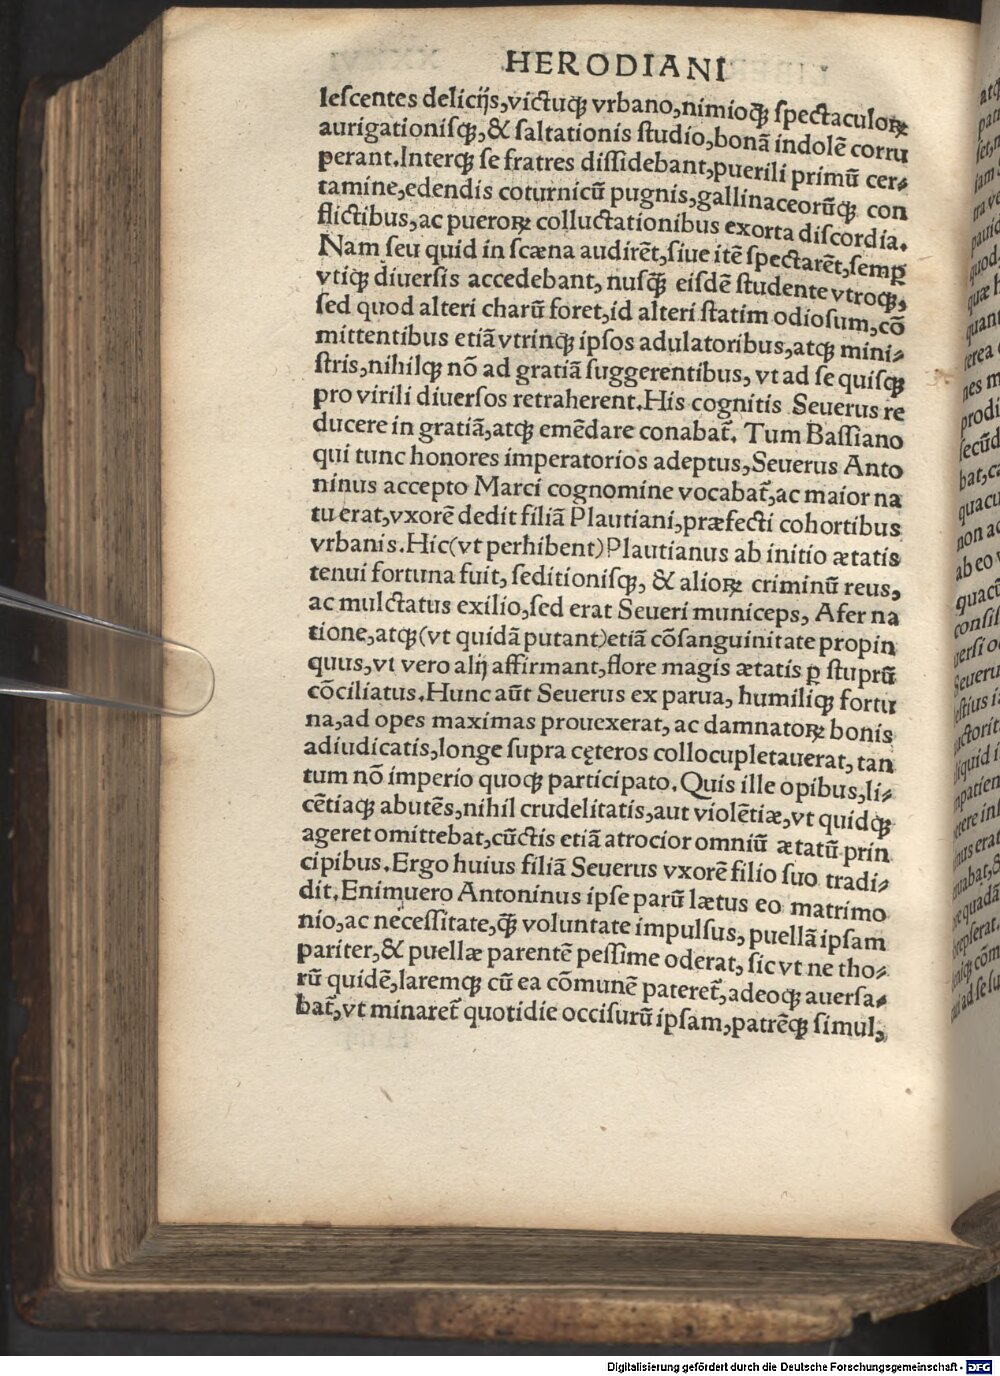 HERODIANI
leſcentes delicijs,victuqꝫ vrbano,nimioqꝫ̃ ſpectaculoꝝ
aurigationiſqꝫ,& ſaltationis ſtudio,bonã indolẽ corru
perant.Interqꝫ ſe fratres diſſidebant,puerili primũ cer⸗
tamine,edendis coturnicũ pugnis,gallinaceorũqꝫ con
flictibus,ac pueroꝝ colluctationibus exorta diſcordia.
Nam ſeu quid in ſcæna audirẽt,ſiue itẽ ſpectarẽt,ſemꝑ
vtiqꝫ diuerſis accedebant, nuſqꝫ̃ eiſdẽ ſtudente vtroqꝫ,
ſed quod alteri charũ foret,id alteri ſtatim odioſum,cõ
mittentibus etiã vtrinqꝫ ipſos adulatoribus,atqꝫ mini⸗
ſtris,nihilqꝫ nõ ad gratiã ſuggerentibus, vt ad ſe quiſqꝫ
pro virili diuerſos retraherent.His cognitis Seuerus re
ducere in gratiã,atqꝫ emẽdare conabat᷑. Tum Baſſiano
qui tunc honores imperatorios adeptus,Seuerus Anto
ninus accepto Marci cognomine vocabat᷑,ac maior na
tu erat,vxorẽ dedit filiã Plautiani,præfecti cohortibus
vrbanis.Hic(vt perhibent)Plautianus ab initio ætatis
tenui fortuna fuit, ſeditioniſqꝫ, & alioꝝ criminũ reus,
ac mulctatus exilio,ſed erat Seueri municeps, Afer na
tione,atqꝫ(vt quidã putant)etiã cõſanguinitate propin
quus,vt vero alij affirmant,flore magis ætatis ꝑ ſtuprũ
cõciliatus.Hunc aũt Seuerus ex parua, humiliqꝫ fortu
na,ad opes maximas prouexerat, ac damnatoꝝ bonis
adiudicatis,longe ſupra cęteros collocupletauerat, tan
tum nõ imperio quoqꝫ participato.Quis ille opibus,li⸗
cẽtiaqꝫ abutẽs,nihil crudelitatis,aut violẽtiæ,vt quidqꝫ
ageret omittebat,cũctis etiã atrocior omniũ ætatũ prin
cipibus.Ergo huius filiã Seuerus vxorẽ filio ſuo tradi⸗
dit.Enimuero Antoninus ipſe parũ lætus eo matrimo
nio,ac neceſſitate,qꝫ̃ voluntate impulſus, puellã ipſam
pariter,& puellæ parentẽ peſſime oderat, ſic vt ne tho⸗
rũ quidẽ,laremqꝫ cũ ea cõmunẽ pateret᷑,adeoqꝫ auerſa⸗
bat᷑,vt minaret᷑ quotidie occiſurũ ipſam,patrẽqꝫ ſimul,
Digitalisierung gefördert durch die Deutsche Forschungsgemeinschaft - DFG